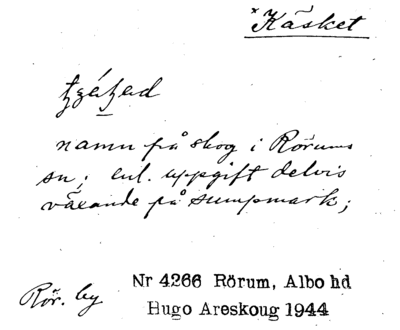 *Käsket
namn på skog i Rörums
sn; enl. uppgift delvis
växande på sumpmark;
Rör. by
Nr 4266 Rörum, Albo hd
Hugo Areskoug 1944